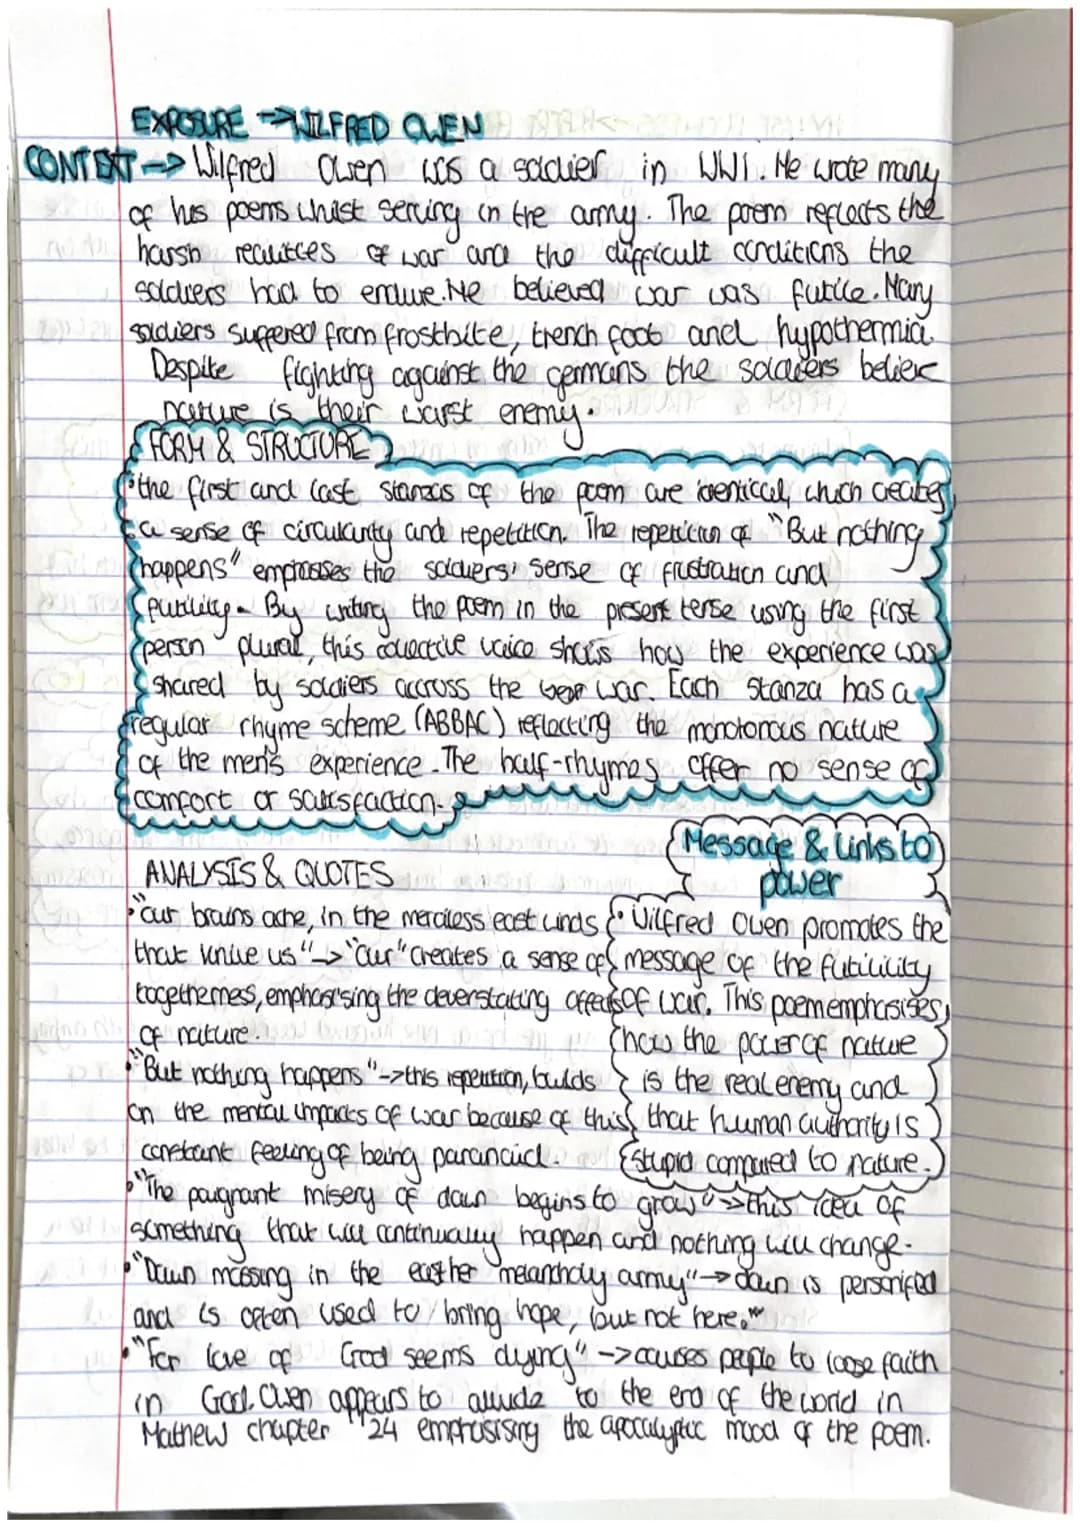 EXPOSURE → WILFRED OWEN
CONTEXT → Wilfred Owen was a soldier in WW1. He wrote many
of his poems whilst serving in the army. The poem reflects the
harsh realities of war and the difficult conditions the
soldiers had to endure. He believed war was futile. Many
soldiers suffered from frostbite, trench foot and hypothermia.
Despite fighting against the germans the soldiers believe
nature is their worst enemy.
FORM & STRUCTURE
• the first and last stanzas of the poem are identical, which creates
a sense of circularity and repetition. The repetition of "But nothing
happens" emphasses the soldiers' sense of frustration and
futility. By writing the poem in the present tense using the first
person plural, this collective voice shows how the experience was
shared by soldiers accross the war. Each stanza has a
regular rhyme scheme (ABBAC) reflecting the monotonous nature
of the men's experience. The half-rhymes offer no sense of
comfort or satisfaction.
ANALYSIS & QUOTES
• "our brains ache, in the merciless east winds
that knive us" → "our" creates a sense of
togetherness, emphasising the deverstating affects
of nature.
• "But nothing happens" → this repetition, builds
on the mental impacts of war because of this
constant feeling of being paranoid.
Message & Links to
power
• Wilfred Owen promotes the
message of the futility
of war. This poem emphasises
how the power of nature
is the real enemy and
that human authority is
stupid compared to nature.
• "The poignant misery of dawn begins to grow" → this idea of
something that will continually happen and nothing will change.
• "Dawn massing in the easther melancholy army" → dawn is personified
and is often used to bring hope, but not here."
• "For love of God seems dying" → causes people to loose faith
in God. Owen appears to allude to the end of the world in
Mathew chapter 24 emphasising the apocalyptic mood of the poem.